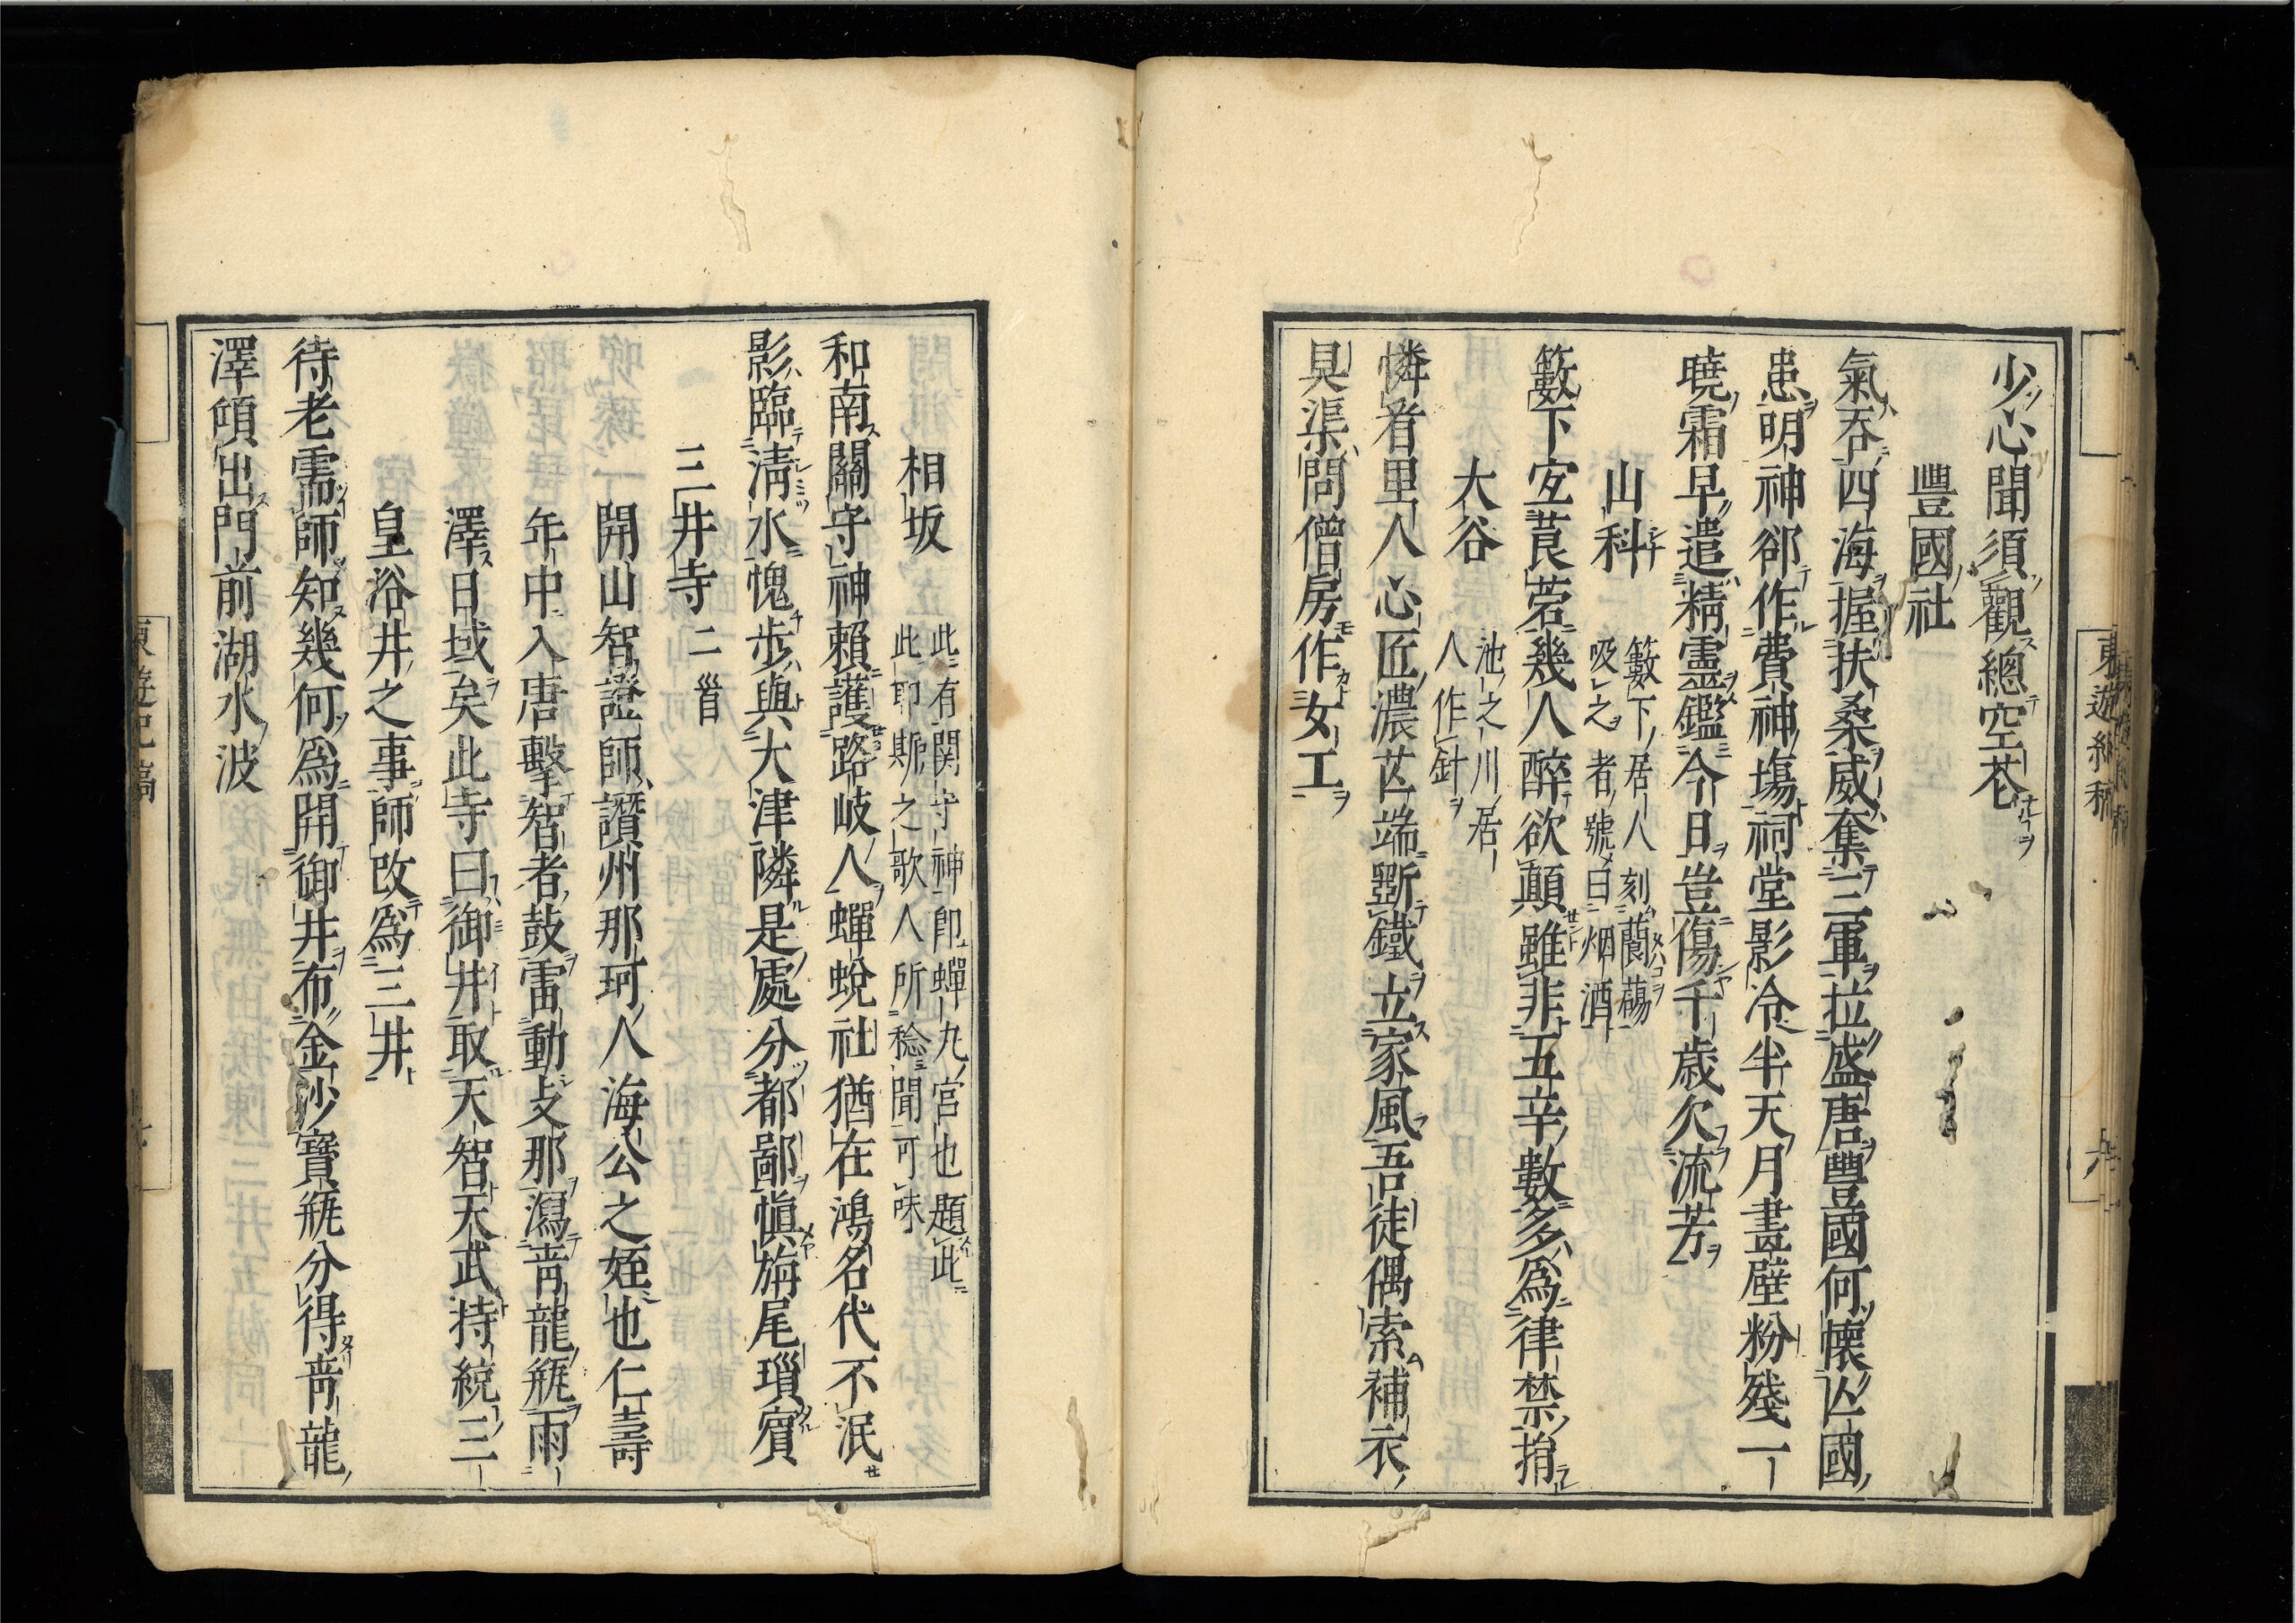 少心聞須觀總空茫
豐國社
氣吞四海握扶桑威奪三軍拉盛唐豐國何懷亾國
患明神郤作費神塲祠堂影冷半天月畫壁粉殘一
曉霜早遣精靈鑑今日豈傷千歳欠流芳
山科
籔下居人刻䕞䕮
吸之者號曰烟酒
籔下㝎莨菪幾人醉欲顛雖非五辛數多爲律禁捐
大谷
池之川居
人作針
憐看里人心匠濃芒端斲鐵立家風吾徒偶索補衣
具渠問僧房作女工
東遊紀稿
六
相坂
此有関守神卽蟬丸宮也題此
此卽斯之歌人所稔聞可味
和南關守神賴護路岐人蟬蛻社猶在鴻名代不泯
影臨淸水愧步與大津隣是處分都鄙愼旃尾瑣賔
三井寺二首
開山智證師讚州那珂人海公之姪也仁壽
年中入唐擊智者鼓雷動支那瀉靑龍甁雨
澤日域矣此寺曰御井取天智天武持統三
皇浴井之事師改爲三井
待老需師知幾何爲開御井布金沙寶甁分得靑龍
澤傾出門前湖水波
東遊紀稿